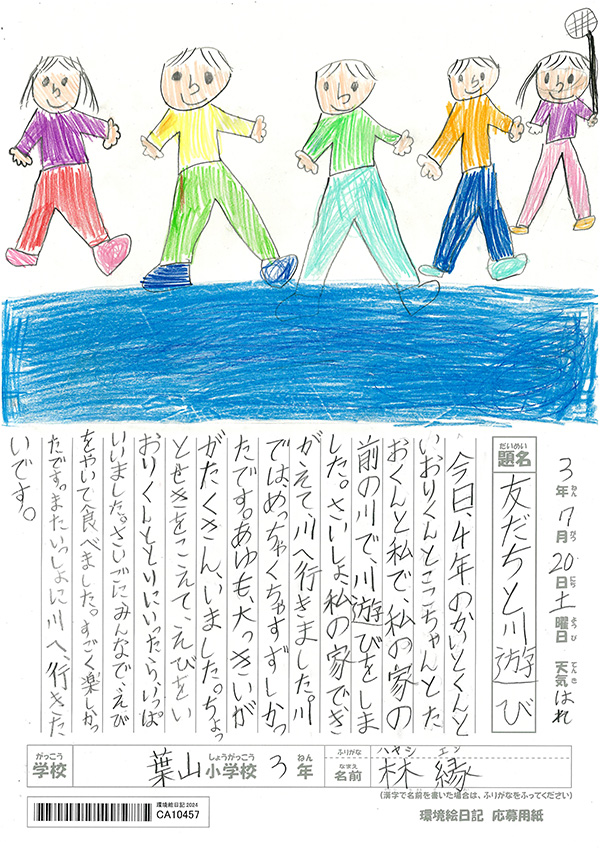 3年7月20日土曜日 天気はれ
ねん がつ にち ようび てんき
だいめい
題名 友だちと川遊び
今日、4年のかいとくんと
いおりくんとここちゃんとた
おくんと私で、私の家の
前の川で、川遊びをしま
した。さいしょ、私の家でき
がえて、川へ行きました。川
では、めっちゃくちゃすずしかっ
たです。あゆも、大っきいが
がたくさん、いました。ちょっ
とせきをこえて、えびをい
おりくんととりにいったら、いっぱ
いいました。さいごにみんなで、えび
をやいて食べました。すごく楽しかっ
たです。またいっしょに川へ行きた
いです。
がっこう しょうがっこう ねん
学校 葉山小学校 3年
ふりがな ハヤシ エン
なまえ
名前 林 縁
(漢字で名前を書いた場合は、ふりがなをふってください)
環境絵日記 2024
CA10457
環境絵日記 応募用紙